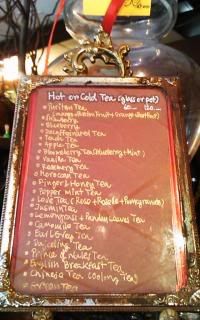 Hot or Cold Tea (glass or pot)
Tea
Strawberry
Blueberry
Decaffeinated Tea
Tea
Apple Tea
Tea (Blueberry + Mint)
Vanilla Tea
Rosemary Tea
Moroccan Tea
Ginger & Honey Tea
Pepper mint Tea
Love Tea (Rose + Roselle + Pomegranate)
Jasmin Tea
Lemongrass + Pandan Leaves Tea
Camomile Tea
Earl Grey Tea
Darjeeling Tea
Prince of Wales Tea
English Breakfast Tea
Chinese Tea (Oolong Tea)
Tea